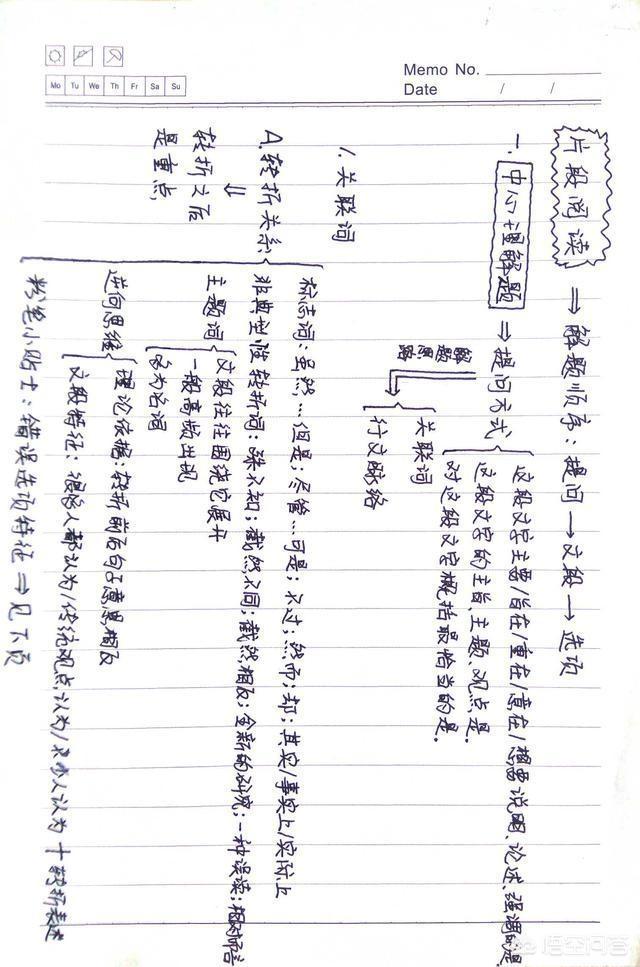 Memo No.
Date / /
Mo Tu We Th Fr Sa Su
片段阅读 ⇒ 解题顺序：提问 → 文段 → 选项
一. 中心理解题 ⇒ 提问方式
这段文字主要/旨在/重在/意在/想要说明、论述、强调的是.
这段文字的主旨、主题、观点是.
对这段文字概括最恰当的是.
解题思路
关联词
行文脉络
1. 关联词
A. 转折关系
⇓
转折之后
是重点
标志词：虽然…但是；尽管…可是；不过；…然而；却；其实/事实上/实际上
非典型性转折词：殊不知；截然不同；截然相反；全新的研究；一种误读；相对而言
主题词
文段往往围绕它展开
一般高频出现
多为名词
逆向思维
理论依据：转折前后句子意思相反
文段特征：很多人都认为/传统观点认为/不少人认为 + 转折表述
粉笔小贴士：错误选项特征 ⇒ 见下页
悟空问答